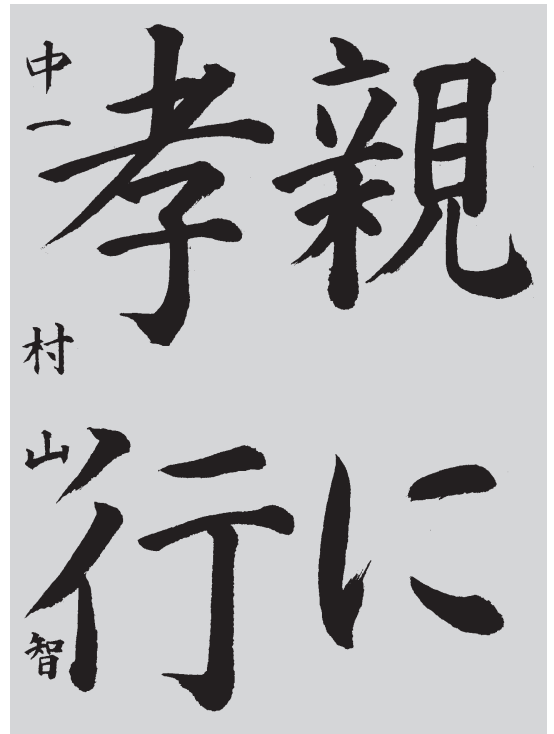 親に
孝行
中一 村山智